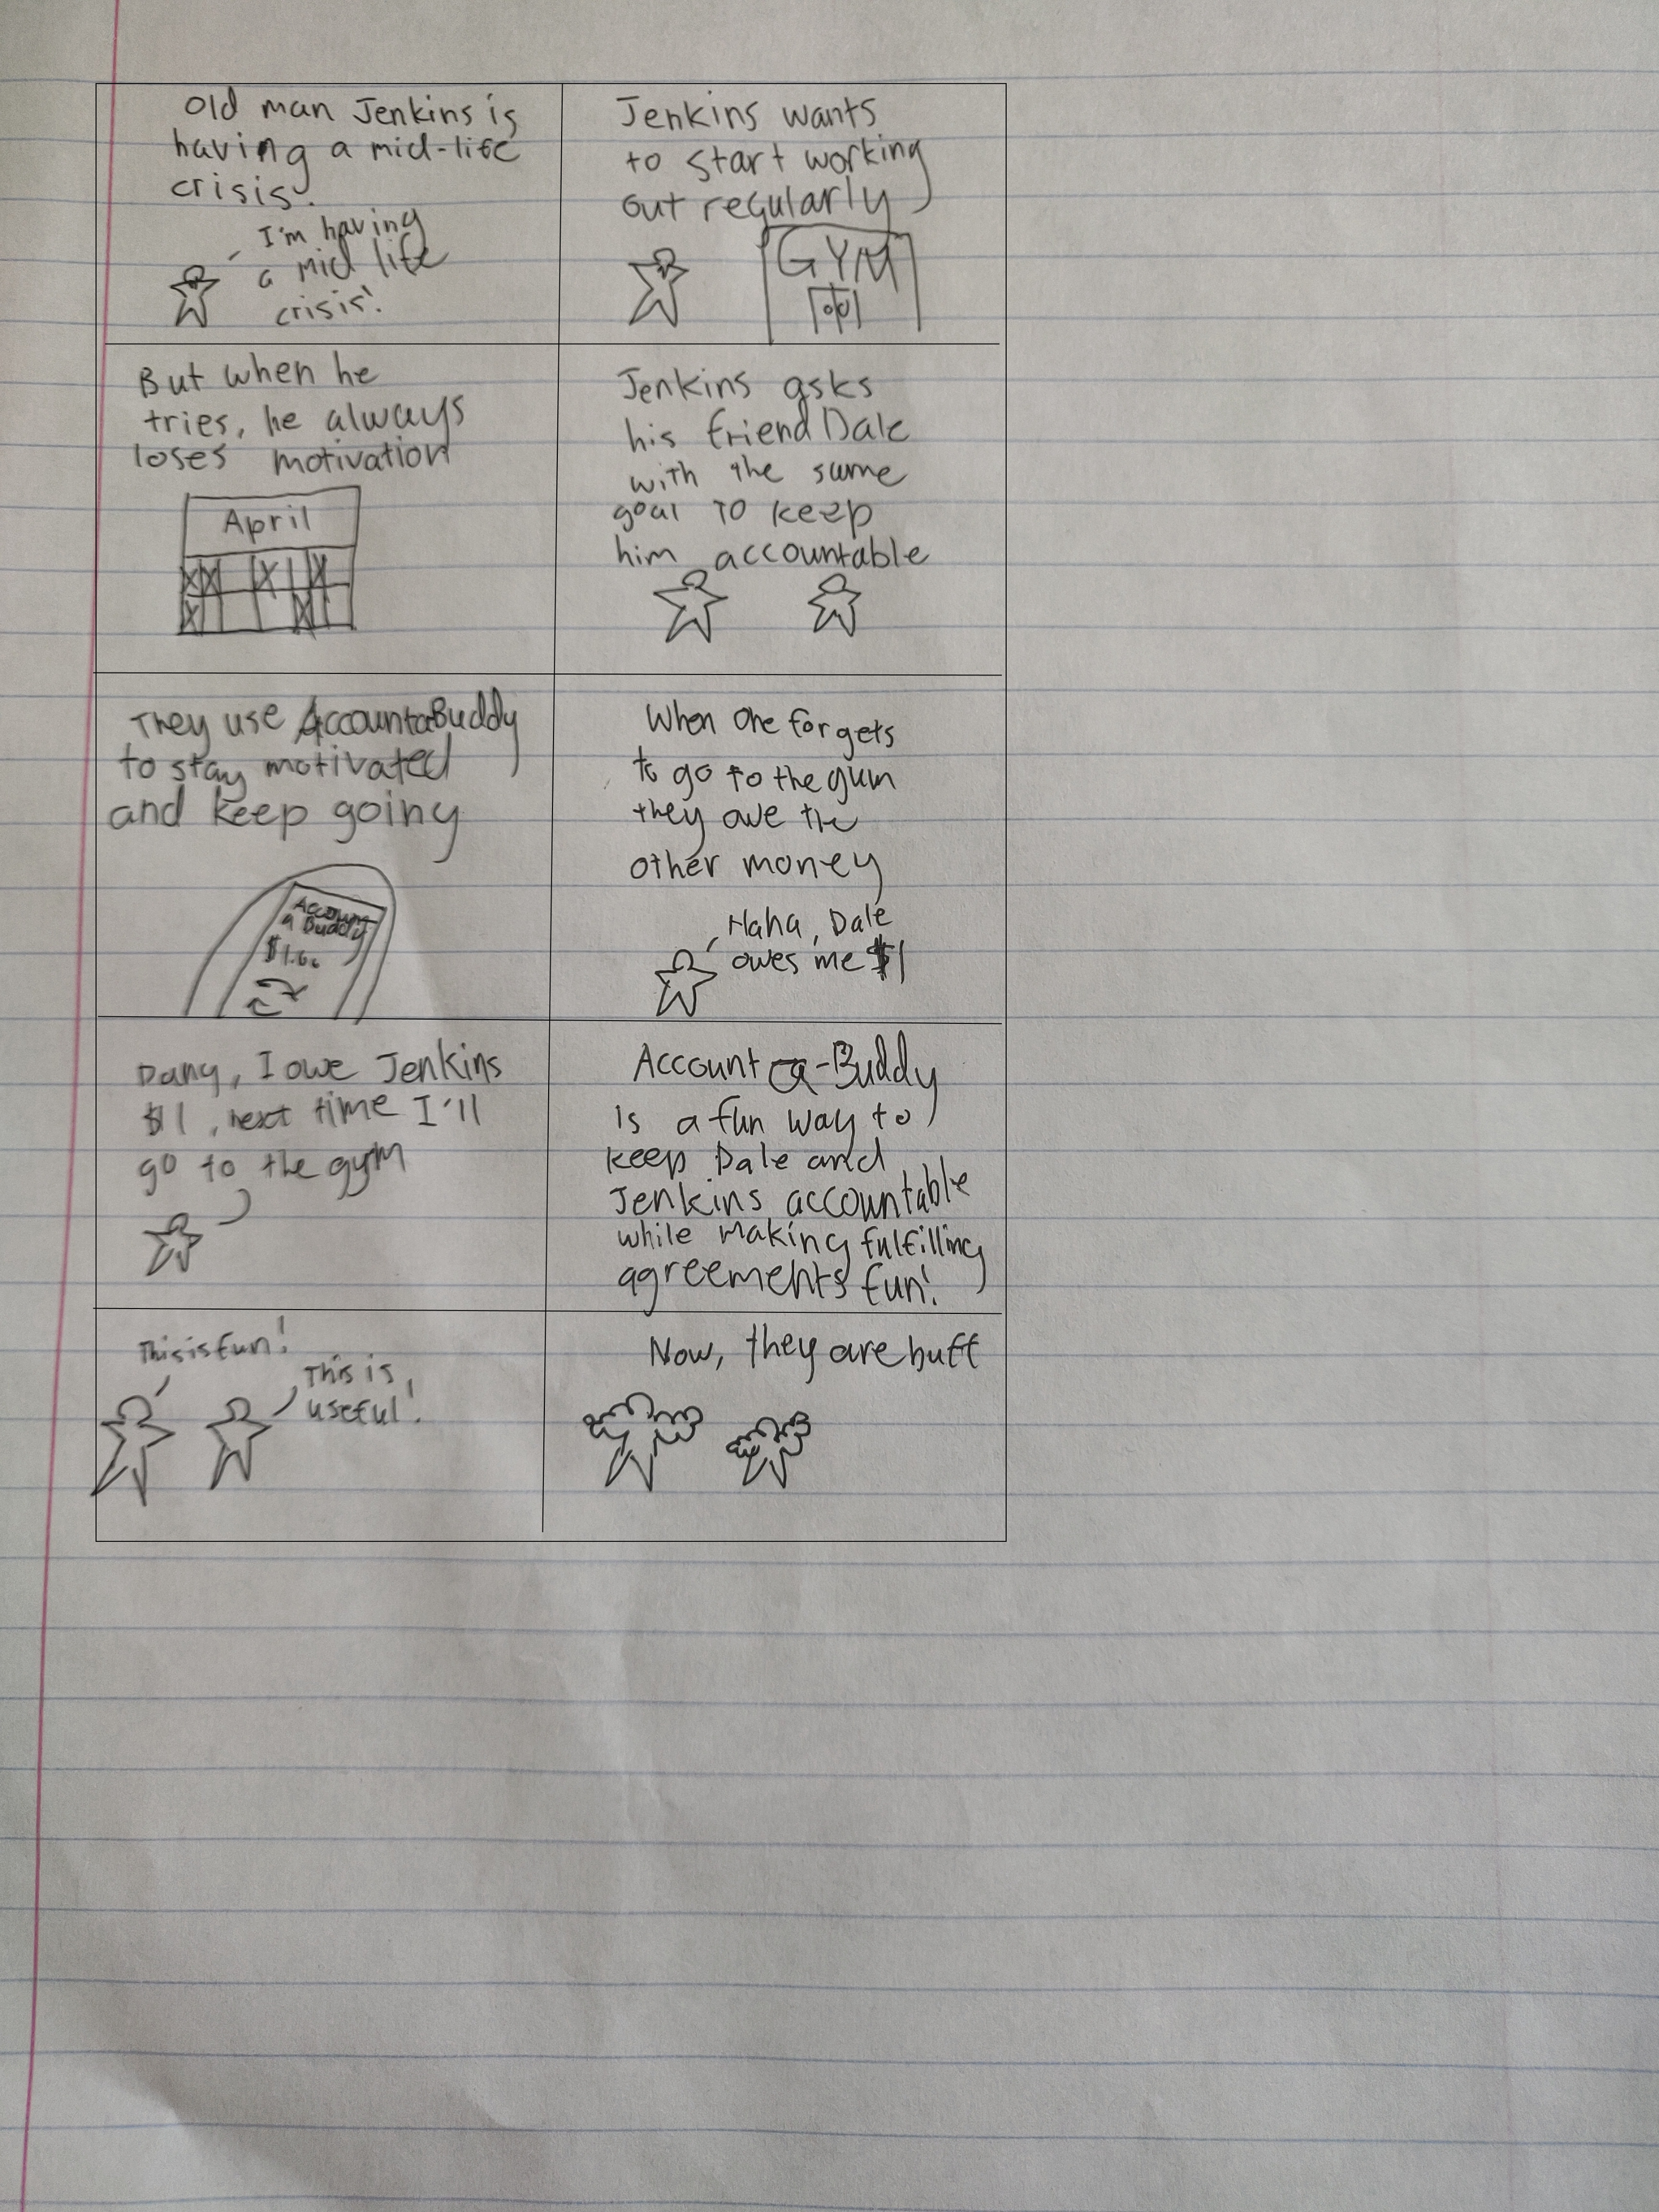 Old man Jenkins is
having a mid-life
crisis.
I'm having
a mid life
crisis!
Jenkins wants
to start working
out regularly
GYM
But when he
tries, he always
loses motivation
April
Jenkins asks
his friend Dale
with the same
goal to keep
him accountable
They use AccountaBuddy
to stay motivated
and keep going
Account
a Buddy
$1.00
When one forgets
to go to the gum
they owe the
other money
Haha, Dale
owes me $1
Dang, I owe Jenkins
$1, next time I'll
go to the gym
Account a-Buddy
is a fun way to
keep Dale and
Jenkins accountable
while making fulfilling
agreements fun!
This is fun!
This is
useful!
Now, they are buff